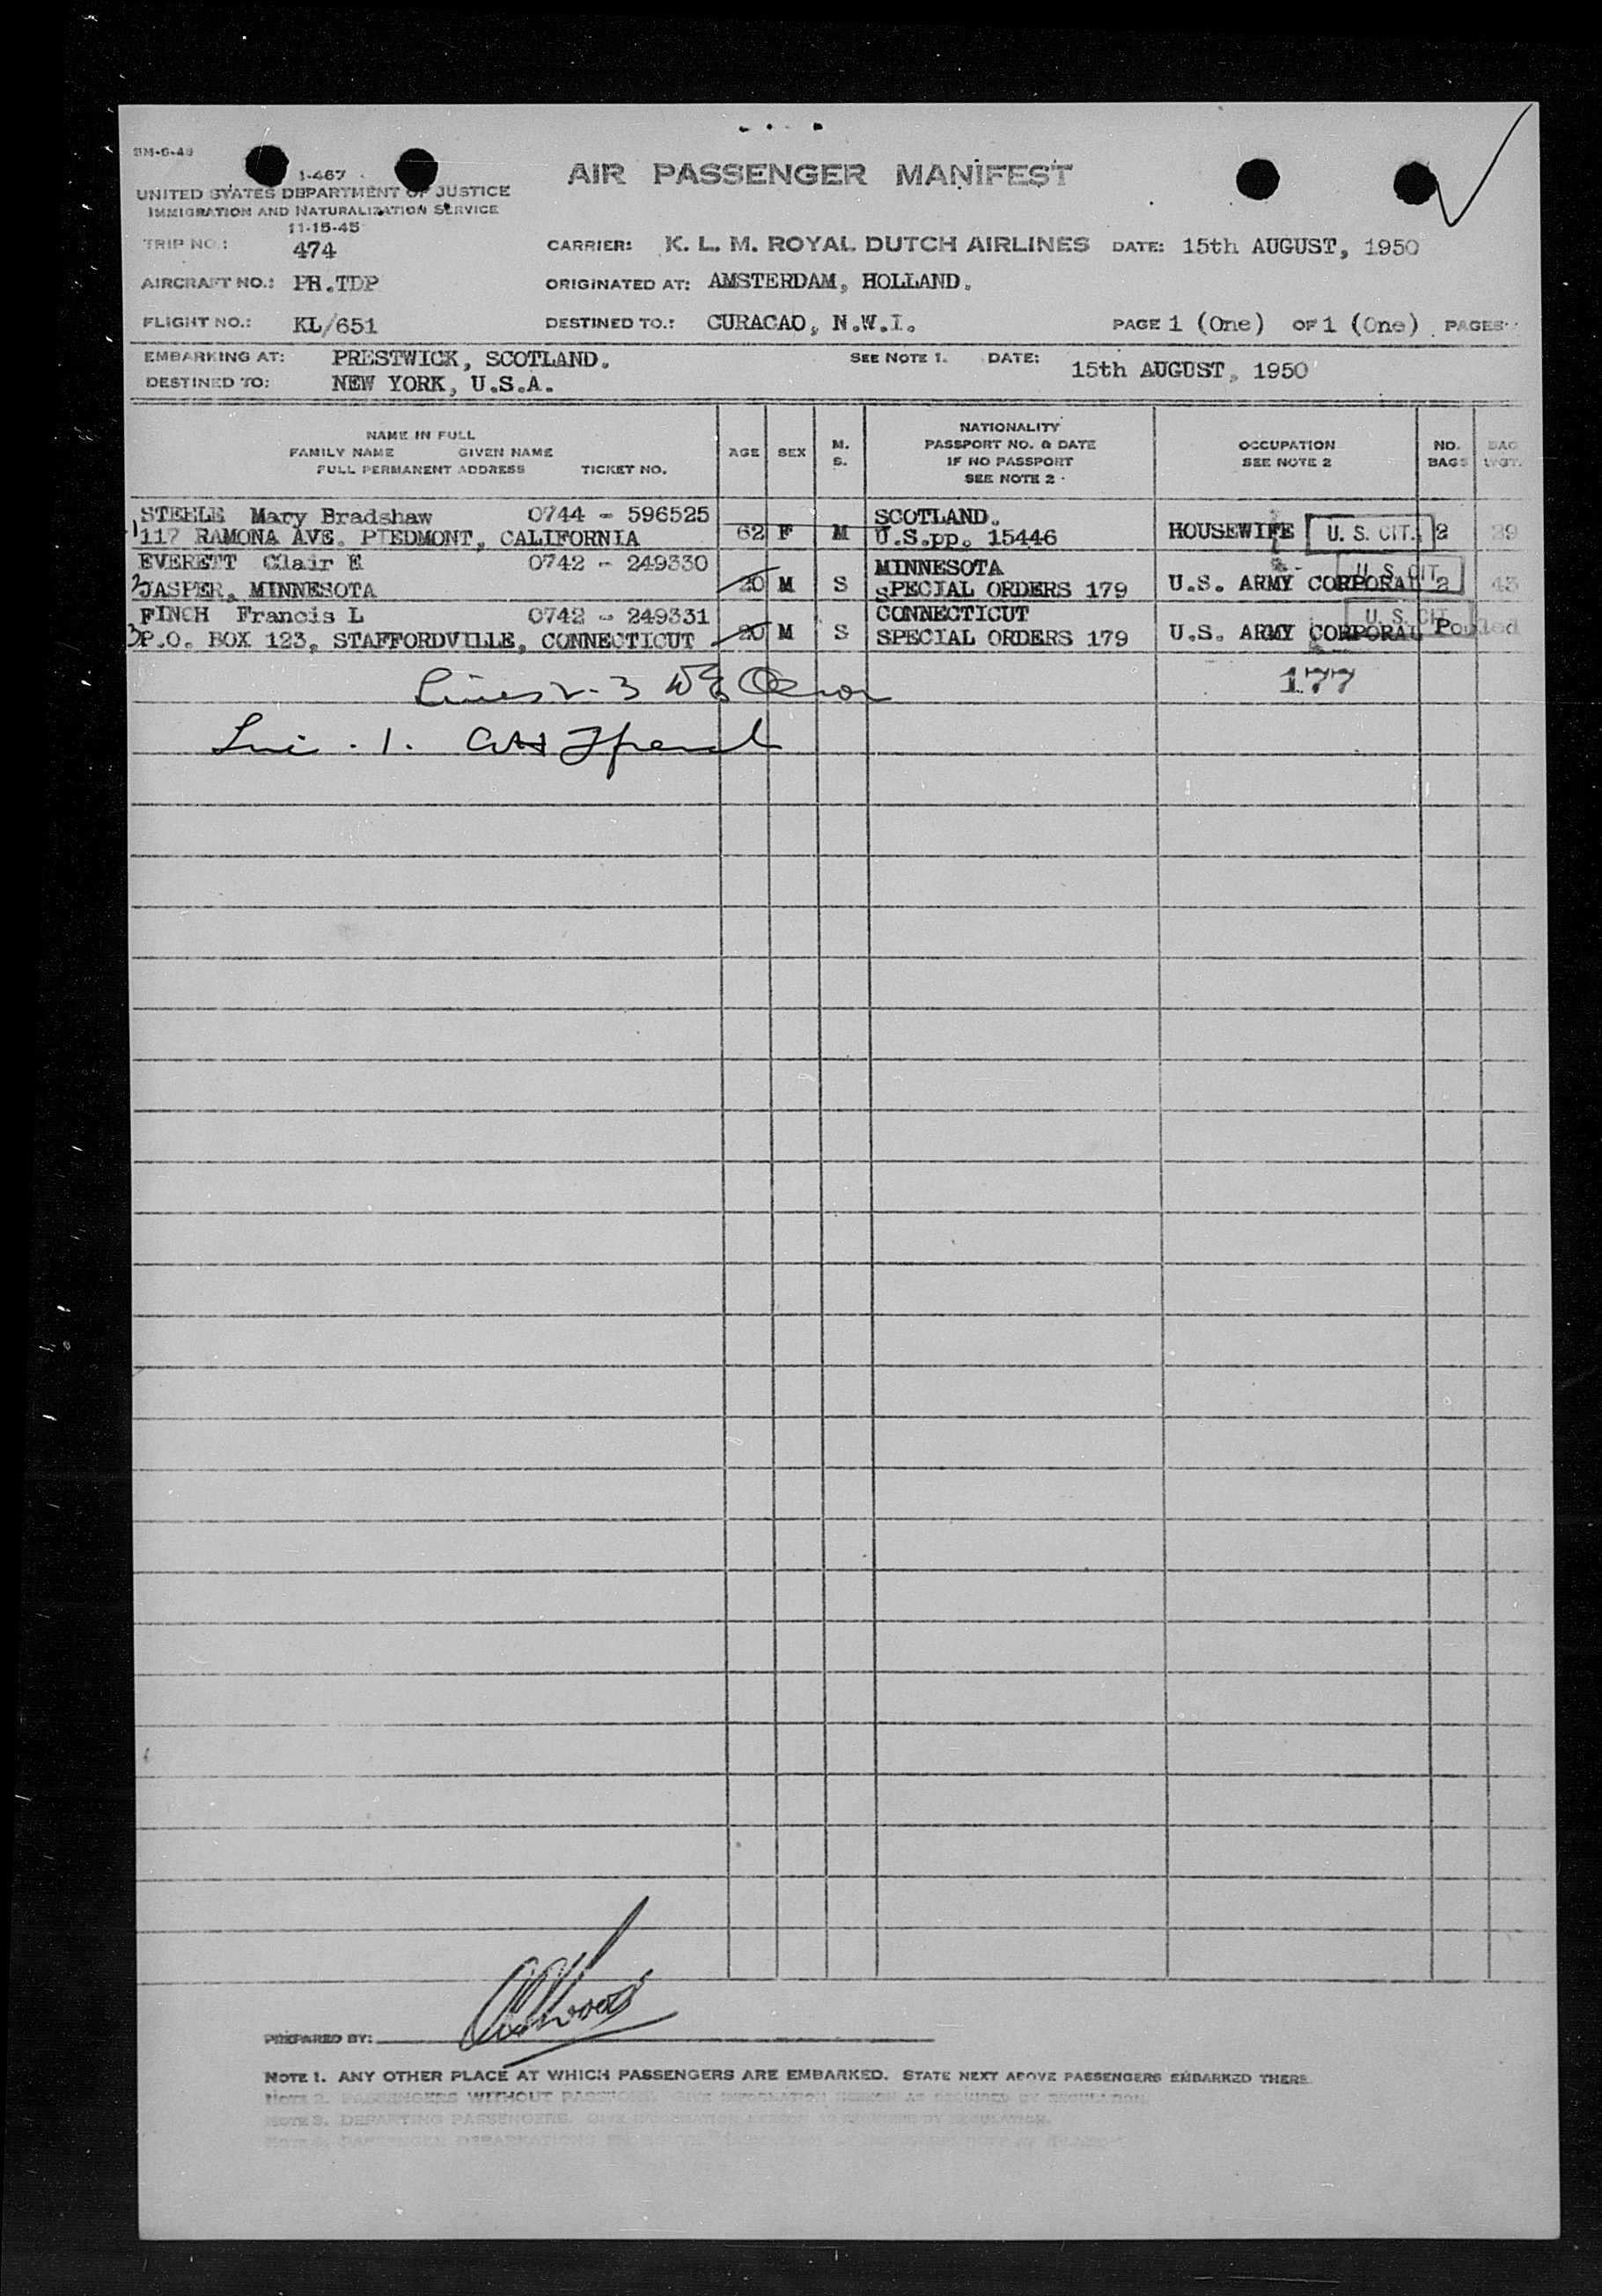 AIR PASSENGER MANIFEST
1-467
UNITED STATES DEPARTMENT OF JUSTICE
IMMIGRATION AND NATURALIZATION SERVICE
11-15-45
TRIP NO.: 474 CARRIER: K. L. M. ROYAL DUTCH AIRLINES DATE: 15th AUGUST, 1950
AIRCRAFT NO.: PH.TDP ORIGINATED AT: AMSTERDAM, HOLLAND.
FLIGHT NO.: KL/651 DESTINED TO.: CURACAO, N.W.I. PAGE 1 (One) OF 1 (One) PAGES
EMBARKING AT: PRESTWICK, SCOTLAND. SEE NOTE 1. DATE: 15th AUGUST, 1950
DESTINED TO: NEW YORK, U.S.A.
NAME IN FULL
FAMILY NAME GIVEN NAME
FULL PERMANENT ADDRESS TICKET NO.
AGE SEX
M.
S.
NATIONALITY
PASSPORT NO. & DATE
IF NO PASSPORT
SEE NOTE 2
OCCUPATION
SEE NOTE 2
NO.
BAGS
BAG
WGT.
STEELE Mary Bradshaw 0744 - 596525 SCOTLAND.
1 117 RAMONA AVE. PIEDMONT, CALIFORNIA 62 F M U.S.pp. 15446 HOUSEWIFE U. S. CIT. 2 29
EVERETT Clair E 0742 - 249330 MINNESOTA U. S. CIT.
2 JASPER, MINNESOTA 20 M S SPECIAL ORDERS 179 U.S. ARMY CORPORAL 2 43
FINCH Francis L 0742 - 249331 CONNECTICUT U. S. CIT.
3 P.O. BOX 123, STAFFORDVILLE, CONNECTICUT 20 M S SPECIAL ORDERS 179 U.S. ARMY CORPORAL Pooled
Lines 2-3 177
Line . 1.
PREPARED BY:
NOTE 1. ANY OTHER PLACE AT WHICH PASSENGERS ARE EMBARKED. STATE NEXT ABOVE PASSENGERS EMBARKED THERE.
NOTE 2. PASSENGERS WITHOUT PASSPORT. GIVE INFORMATION HEREON AS REQUIRED BY REGULATION.
NOTE 3. DEPARTING PASSENGERS. GIVE INFORMATION HEREON AS REQUIRED BY REGULATION.